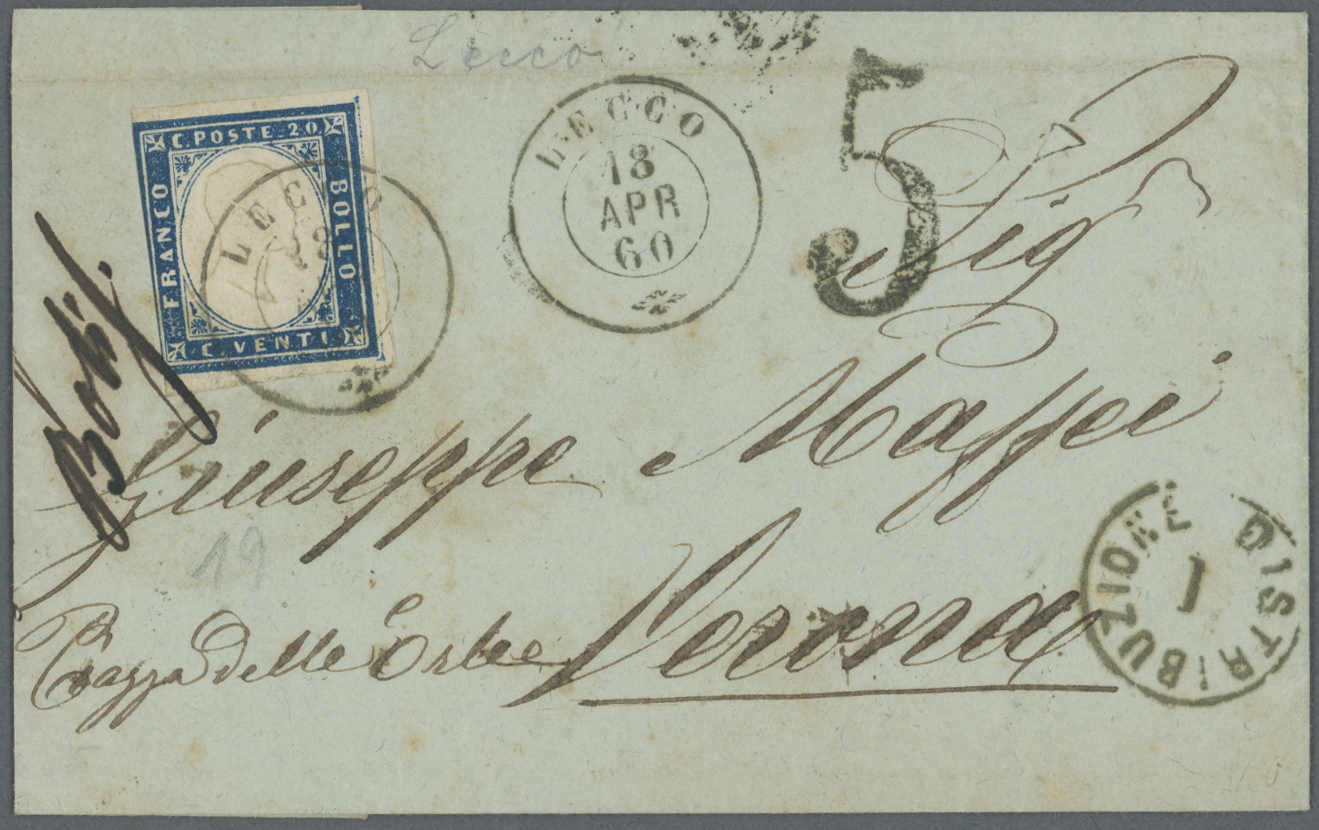 Lecco
C. POSTE 20
FRANCO
BOLLO
C. VENTI
LECCO
18
LECCO
18
APR
60
5
Sig
Giuseppe Maffei
19
Piazza delle Erbe Verona
DISTRIBUZIONE
1